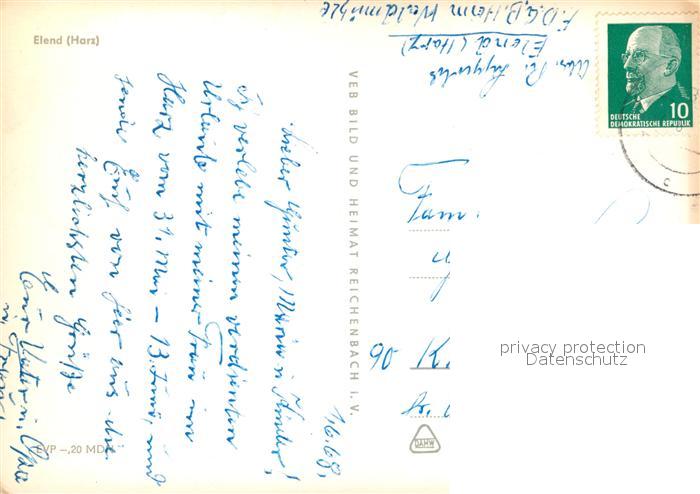 Elend (Harz)
Abs. R.
Elend (Harz)
F.D.G.B. Heim Waldmühle
DEUTSCHE
DEMOKRATISCHE REPUBLIK
10
VEB BILD UND HEIMAT REICHENBACH i. V.
1.6.68.
Lieber Günter, Maria u. Kinder!
Ich verlebe meinen verdienten
Urlaub mit meiner Frau im
Harz vom 31. Mai – 13. Juni, und
sende Euch von hier aus die
herzlichsten Grüße
Euer Vater u. Opa
Fam
90 K
EVP –,20 MDN
DAMW
privacy protection
Datenschutz